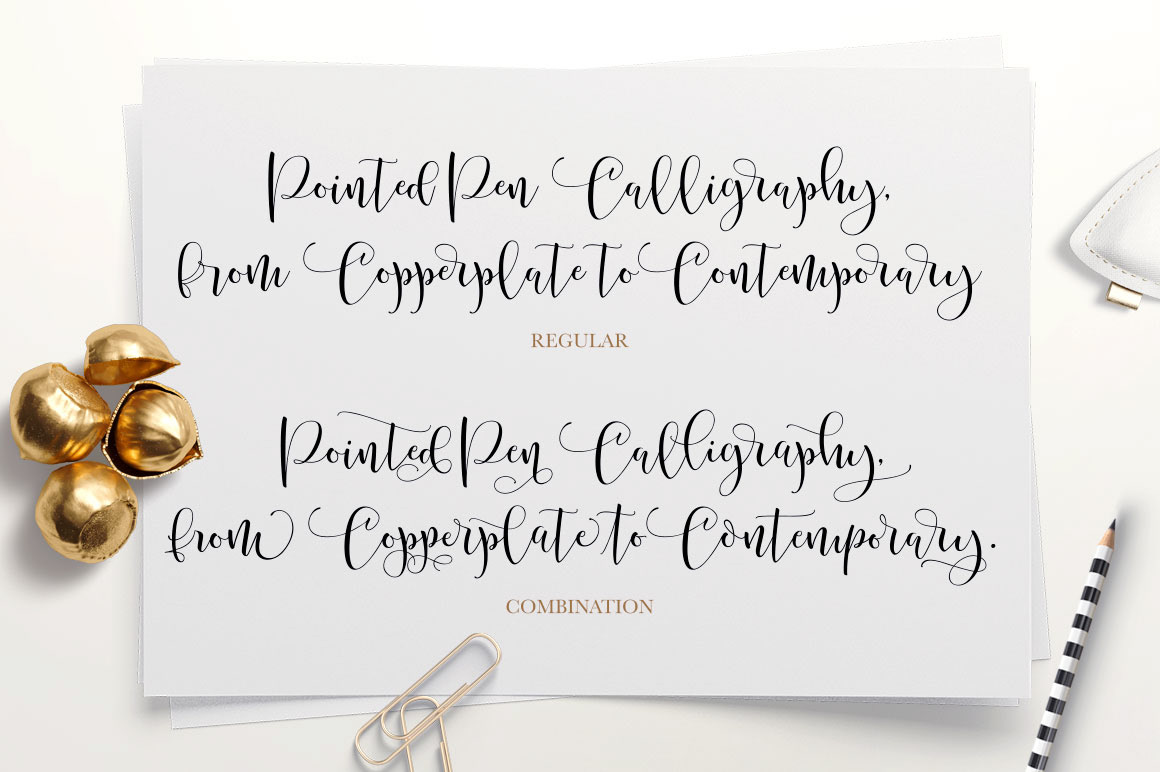 Pointed Pen Calligraphy,
from Copperplate to Contemporary
REGULAR
Pointed Pen Calligraphy,
from Copperplate to Contemporary.
COMBINATION